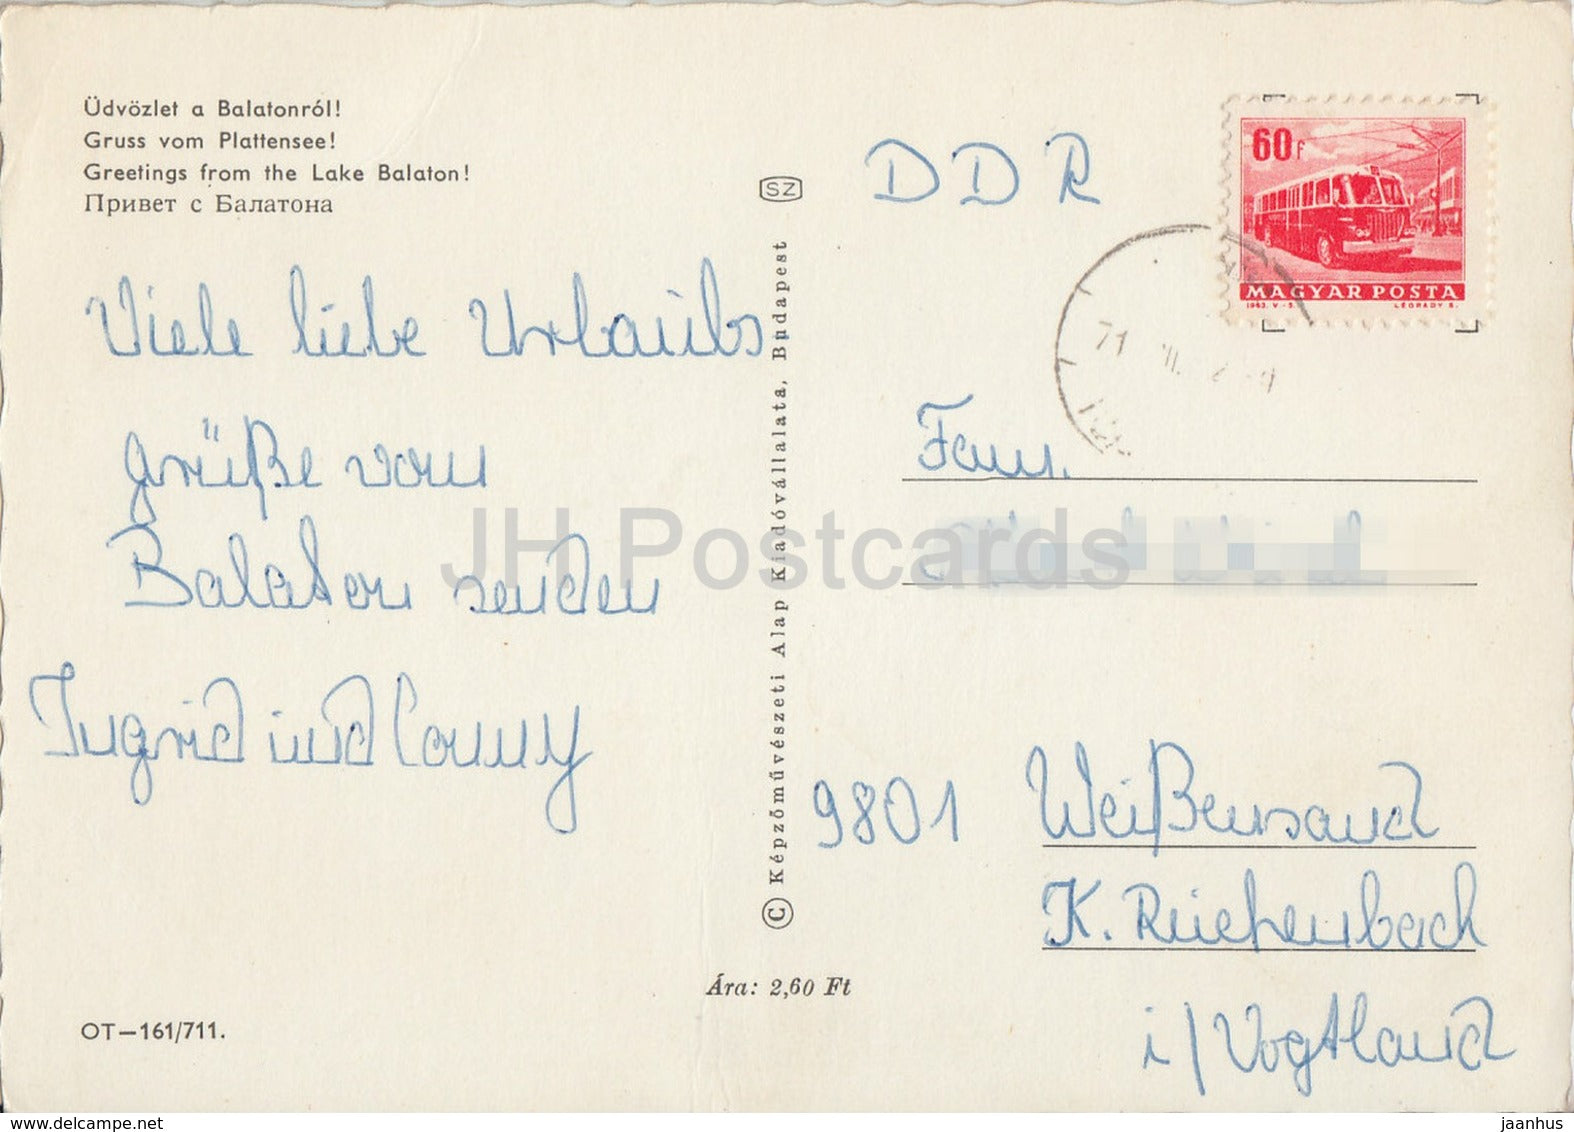 Üdvözlet a Balatonról!
Gruss vom Plattensee!
Greetings from the Lake Balaton!
Привет с Балатона
Viele liebe Urlaubs
grüße vom
Balaton senden
Ingrid und Conny
OT—161/711.
SZ
© Képzőművészeti Alap Kiadóvállalata, Budapest
Ára: 2,60 Ft
DDR
60f
MAGYAR POSTA
1963. V-S.
LÉGRÁDY S.
71
Fam.
9801 Weißensand
K. Reichenbach
i/Vogtland
JH Postcards
www.delcampe.net
jaanhus